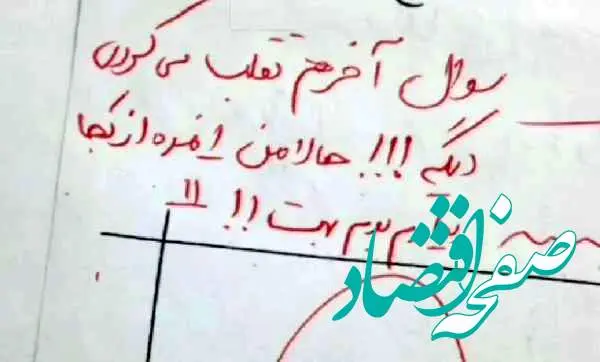 سوال آخر هم تقلب می کردی
دیگه !!! حالا من ۱ نمره از کجا
بدم بهت !! "
صفحه اقتصاد